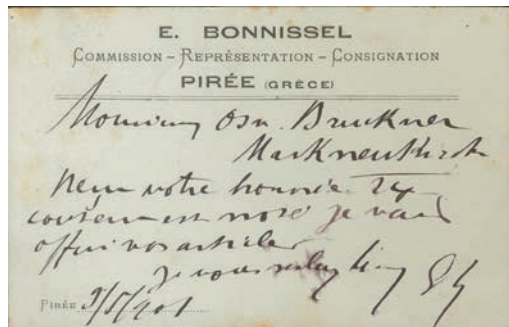 E. BONNISSEL
COMMISSION – REPRÉSENTATION – CONSIGNATION
PIRÉE (GRÈCE)
Monsieur Osw. Bruckner
Markneukirch
votre honorée 24
courant est noté je vais
offrir vos articles
je vous
PIRÉE 9/5/901